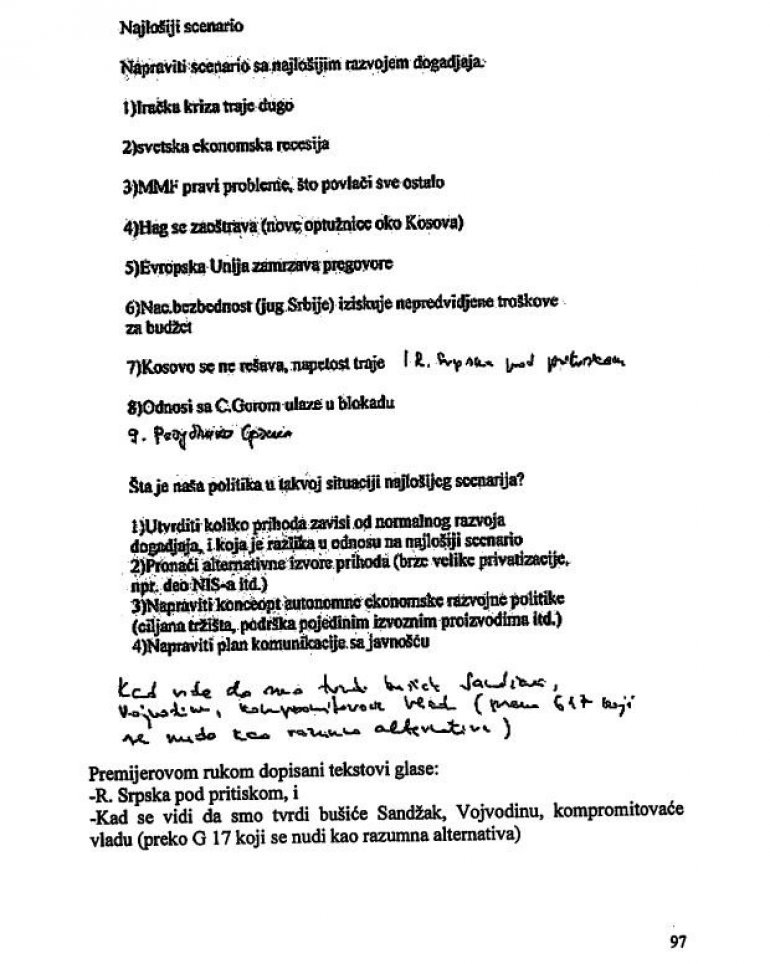 Najlošiji scenario
Napraviti scenario sa najlošijim razvojem dogadjaja.
1)Iračka kriza traje dugo
2)svetska ekonomska recesija
3)MMF pravi probleme, što povlači sve ostalo
4)Hag se zaoštrava (nove optužnice oko Kosova)
5)Evropska Unija zamrzava pregovore
6)Nac.bezbednost (jug Srbije) iziskuje nepredvidjene troškove
za budžet
7)Kosovo se ne rešava, napetost traje R. Srpska pod pritiskom
8)Odnosi sa C.Gorom ulaze u blokadu
9.
Šta je naša politika u takvoj situaciji najlošijeg scenarija?
1)Utvrditi koliko prihoda zavisi od normalnog razvoja
dogadjaja, i koja je razlika u odnosu na najlošiji scenario
2)Pronaći alternativne izvore prihoda (brze velike privatizacije,
npr. deo NIS-a itd.)
3)Napraviti konceopt autonomne ekonomske razvojne politike
(ciljana tržišta, podrška pojedinim izvoznim proizvodima itd.)
4)Napraviti plan komunikacije sa javnošću
Kad vide da smo tvrdi bušiće Sandžak,
Vojvodinu, kompromitovaće vladu (preko G17 koji
se nudi kao razumna alternativa)
Premijerovom rukom dopisani tekstovi glase:
-R. Srpska pod pritiskom, i
-Kad se vidi da smo tvrdi bušiće Sandžak, Vojvodinu, kompromitovaće
vladu (preko G 17 koji se nudi kao razumna alternativa)
97